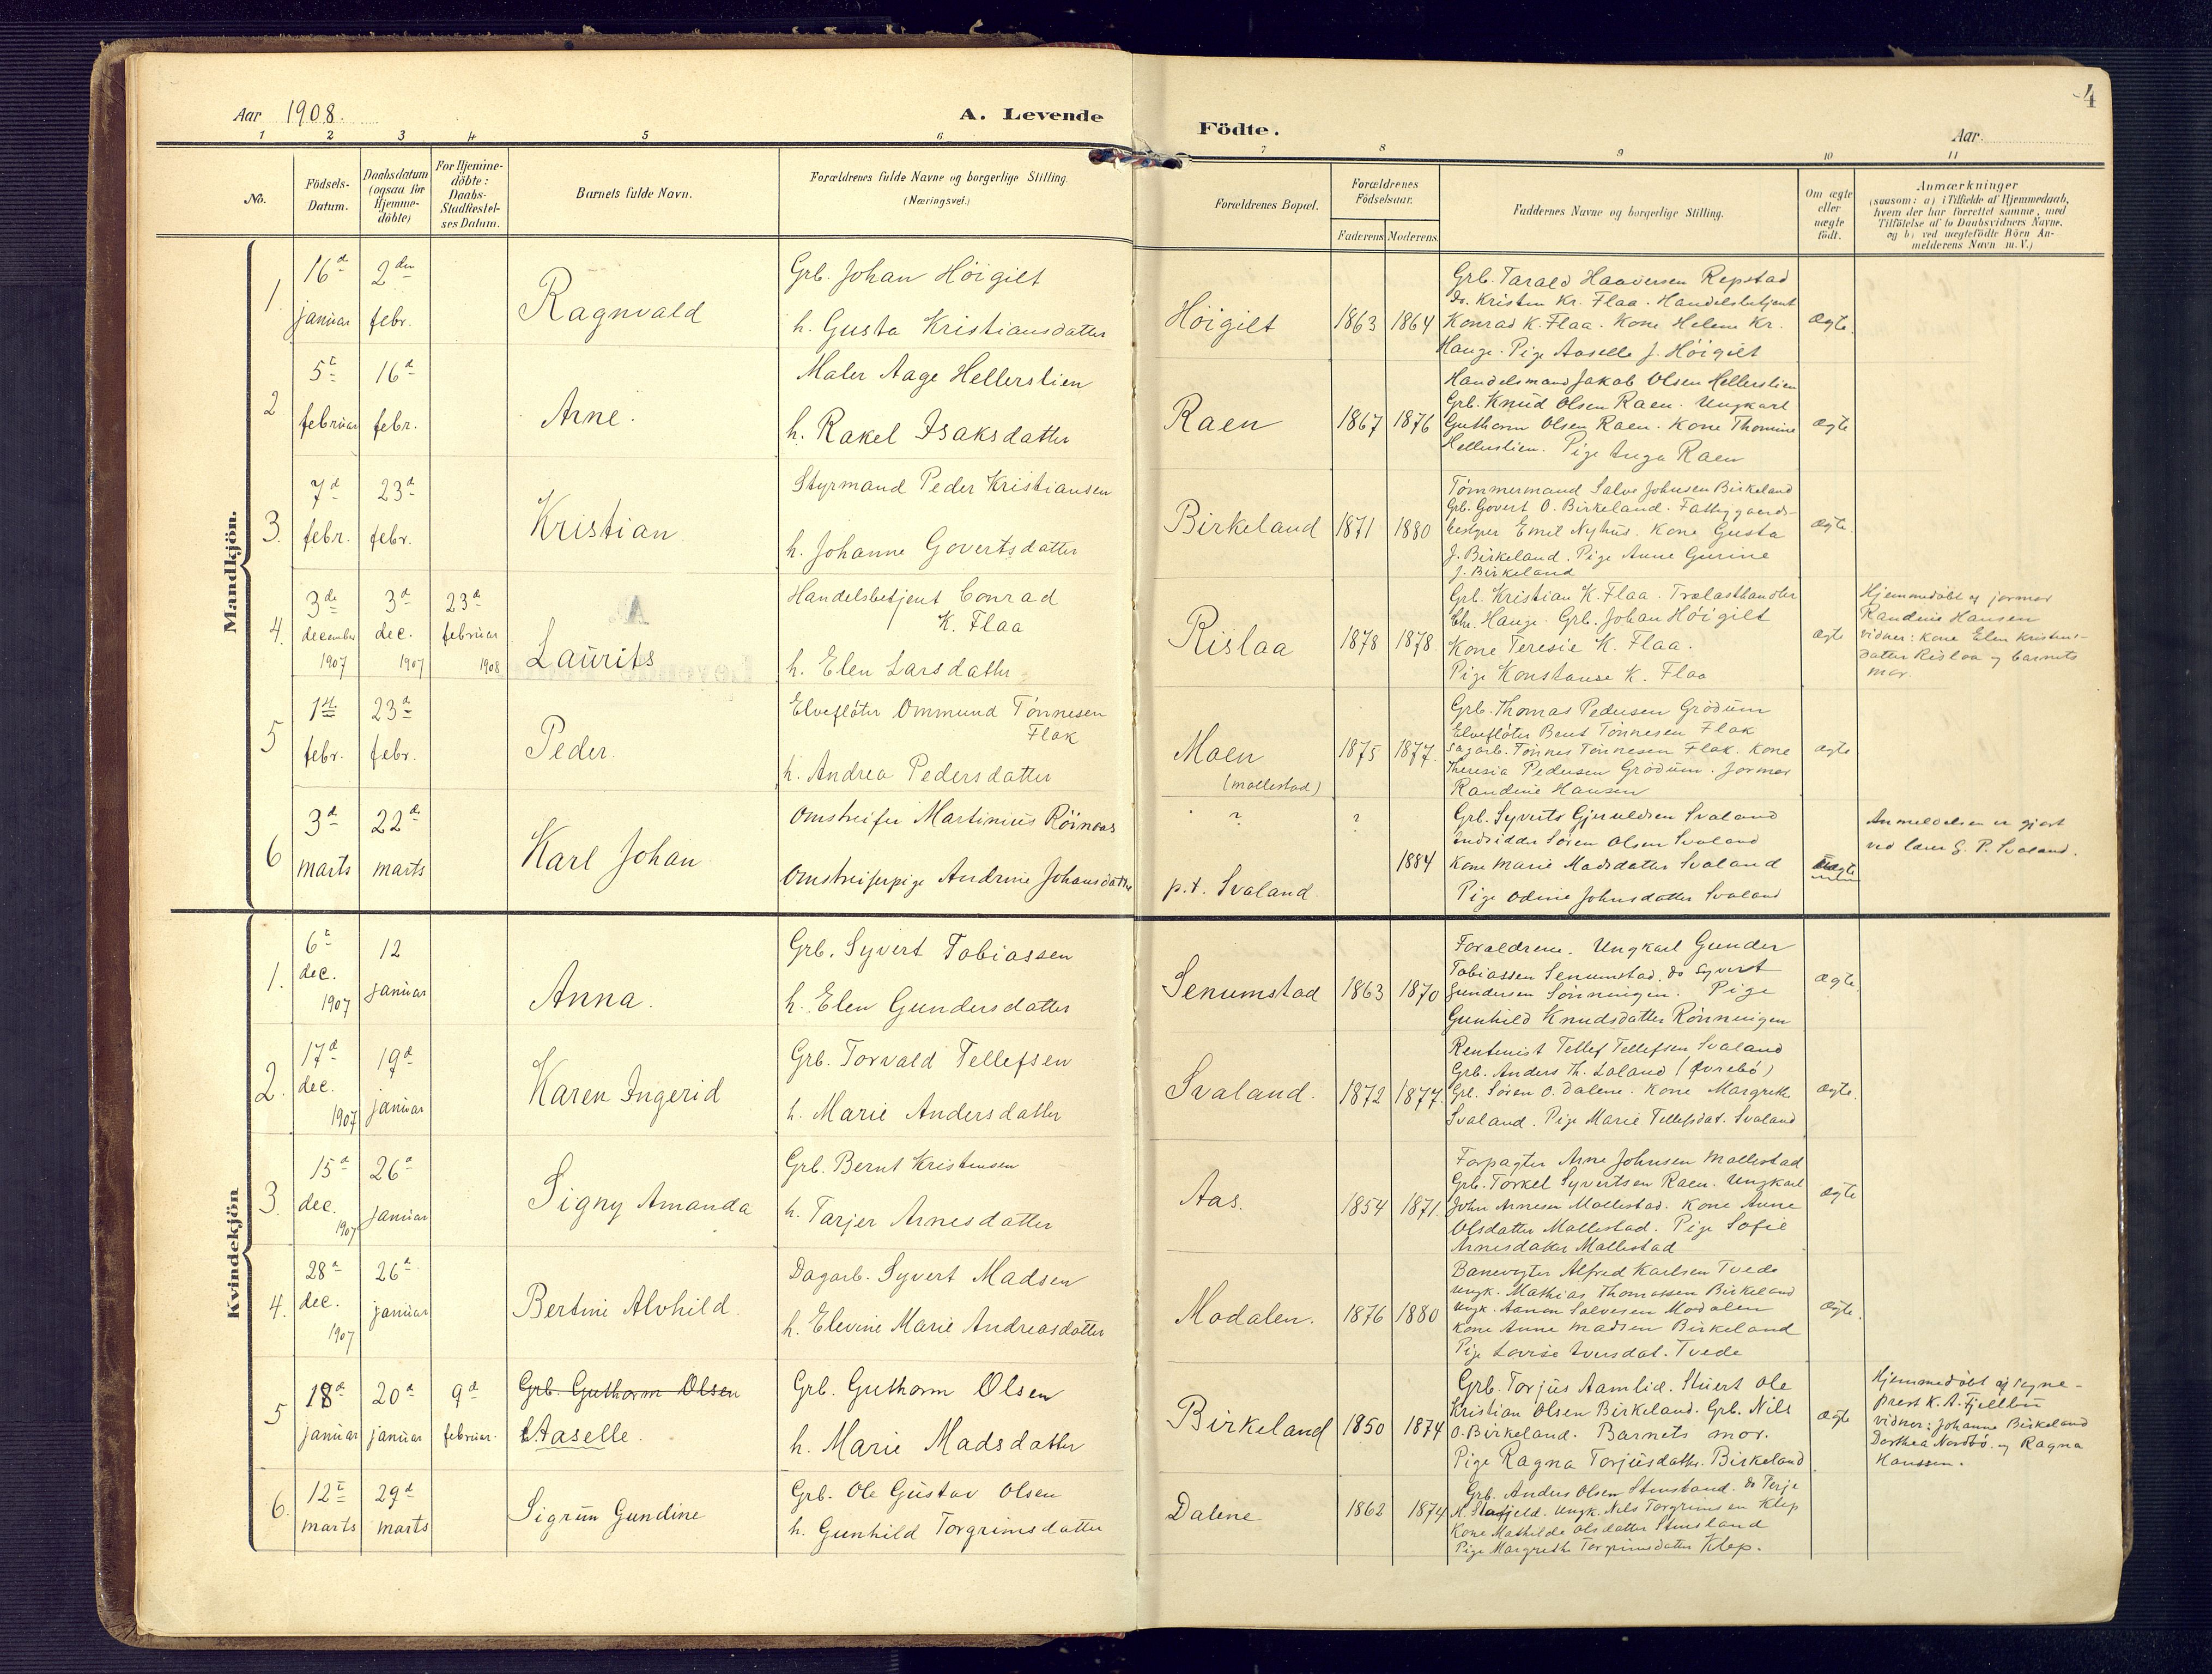 4
Aar 1908.
A. Levende
Födte.
Aar
1 2 3 4 5 6 7 8 9 10 11
No.
Födsels-
Datum.
Daabsdatum
(ogsaa för
Hjemme-
döbte)
For Hjemme-
döbte:
Daabs-
Stadfæstel-
ses Datum.
Barnets fulde Navn.
Forældrenes fulde Navne og borgerlige Stilling.
(Næringsvei.)
Forældrenes Bopæl.
Forældrenes
Födselsaar.
Faderens Moderens
Faddernes Navne og borgerlige Stilling.
Om ægte
eller
uægte
födt.
Anmærkninger
(saasom: a) i Tilfælde af Hjemmedaab,
hvem der har forrettet samme, med
Tilföielse af to Daabsvidners Navne,
og b) ved uægtefödte Börn An-
melderens Navn m. V.)
Mandkjön.
1.
16d
januar
2den
febr.
Ragnvald
Grb. Johan Höigilt
h. Gusta Kristiansdatter
Höigilt
1863
1864
Grb. Tarald Haaversen Repstad
Do. Kristen Kr. Flaa. Handelsbetjent
Konrad K. Flaa. Kone Helene Kr.
Hauge. Pige Aaselle J. Höigilt
ægte.
2
5t
februar
16d
febr.
Arne.
Maler Aage Hellerslien
h. Rakel Isaksdatter
Raen
1867
1876
Handelsmand Jakob Olsen Hellerslien
Grb. Knud Olsen Raen. Ungkarl
Guthorm Olsen Raen. Kone Thomine
Hellerslien. Pige Inga Raen
ægte
3.
7d
febr.
23d
febr.
Kristian
Styrmand Peder Kristiansen
h. Johanne Govertsdatter
Birkeland
1871
1880
Tömmermand Salve Johnsen Birkeland
Grb. Govert O. Birkeland. Fattiggaards-
bestyrer Emil Nyhus. Kone Gusta
J. Birkeland. Pige Anne Gurine
J. Birkeland
ægte.
4.
3de
december
1907
3d
dec.
1907
23d
februar
1908
Laurits
Handelsbetjent Conrad
K. Flaa
h. Elen Larsdatter
Rislaa
1878
1878
Grb. Kristian K. Flaa. Trælasthandler
Chr. Hauge. Grb. Johan Höigilt
Kone Teresie K. Flaa.
Pige Konstanse K. Flaa
ægte
Hjemmedöbt af jormor
Randine Hansen
vidner: Kone Elen Kristens-
datter Rislaa og barnets
mor.
5
1st
febr.
23d
febr.
Peder.
Elveflöter Ommund Tönnesen
Flak
h. Andrea Pedersdatter
Moen
(mollestad)
1875
1877.
Grb. Thomas Pedersen Grödum
Elveflöter Bent Tönnesen Flak
Sagarb. Tönnes Tönnesen Flak. Kone
Theresia Pedersen Grödum. Jormor
Randine Hansen
ægte
6
3d
marts
22d
marts
Karl Johan
Omstreifer Martinius Röinaas
Omstreiferpige Andrine Johansdatter
?
p.t. Svaland.
?
1884
Grb. Syverts Gjeruldsen Svaland
Indsidder Sören Olsen Svaland
Kone Marie Madsdatter Svaland
Pige Odine Johnsdatter Svaland
uægte
Anmeldelsen er gjort
ved lærer G. P. Svaland.
Kvindekjön
1.
6t
dec.
1907
12
januar
Anna.
Grb. Syvert Tobiassen
h. Elen Gundersdatter
Senumstad
1863
1870
Forældrene. Ungkarl Gunder
Tobiassen Senumstad. do Syvert
Gundersen Rönningen. Pige
Gunhild Knudsdatter Rönningen
ægte.
2.
17d
dec.
1907
19d
januar
Karen Ingerid
Grb. Torvald Tellefsen
h. Marie Andersdatter
Svaland.
1872
1877.
Rentenist Tellef Tellefsen Svaland
Grb. Anders Th. Loland (Øvrebö)
Grb. Sören O. Dalene. Kone Margrethe
Svaland. Pige Marie Tellefsdat. Svaland
ægte.
3.
15d
dec.
1907
26d
januar
Signy Amanda
Grb. Bernt Kristensen
h. Tarjer Arnesdatter
Aas.
1854
1871
Forpagter Arne Johnsen Mollestad
Grb. Torkel Syvertsen Raen. Ungkarl
John Arnesen Mollestad. Kone Anne
Olsdatter Mollestad. Pige Sofie
Arnesdatter Mollestad
ægte
4.
28d
dec.
1907
26d
januar
Bertine Alvhild.
Dagarb. Syvert Madsen
h. Elevine Marie Andreasdatter
Modalen.
1876
1880
Banevogter Alfred Karlsen Tvede
Ungk. Mathias Thomassen Birkeland
Ungk. Aanon Salvesen Modalen
Kone Anne Madsen Birkeland
Pige Lovise Iversdat. Tvede
ægte.
5
18d
januar
20d
januar
9d
februar.
Grb. Guthorm Olsen
Aaselle.
Grb. Guthorm Olsen
h. Marie Madsdatter
Birkeland
1850
1874
Grb. Torjus Aamlid. Stuert Ole
Kristian Olsen Birkeland. Grb. Nils
O. Birkeland. Barnets mor.
Pige Ragna Torjusdatter Birkeland
ægte
Hjemmedöbt af sogne-
prest K. A. Fjellbu
vidner: Johanne Birkeland
Dorthea Nordbö og Ragna
Hanssen.
6.
12t
marts
29d
marts
Sigrun Gundine
Grb. Ole Gustav Olsen
h. Gunhild Torgrimsdatter
Dalene
1862
1874
Grb. Anders Olsen Stensland. do Terje
K. Ungk. Nils Torgrimsen Klep
Kone Mathilde Olsdatter Stensland
Pige Margrethe Torgrimsdatter Klep.